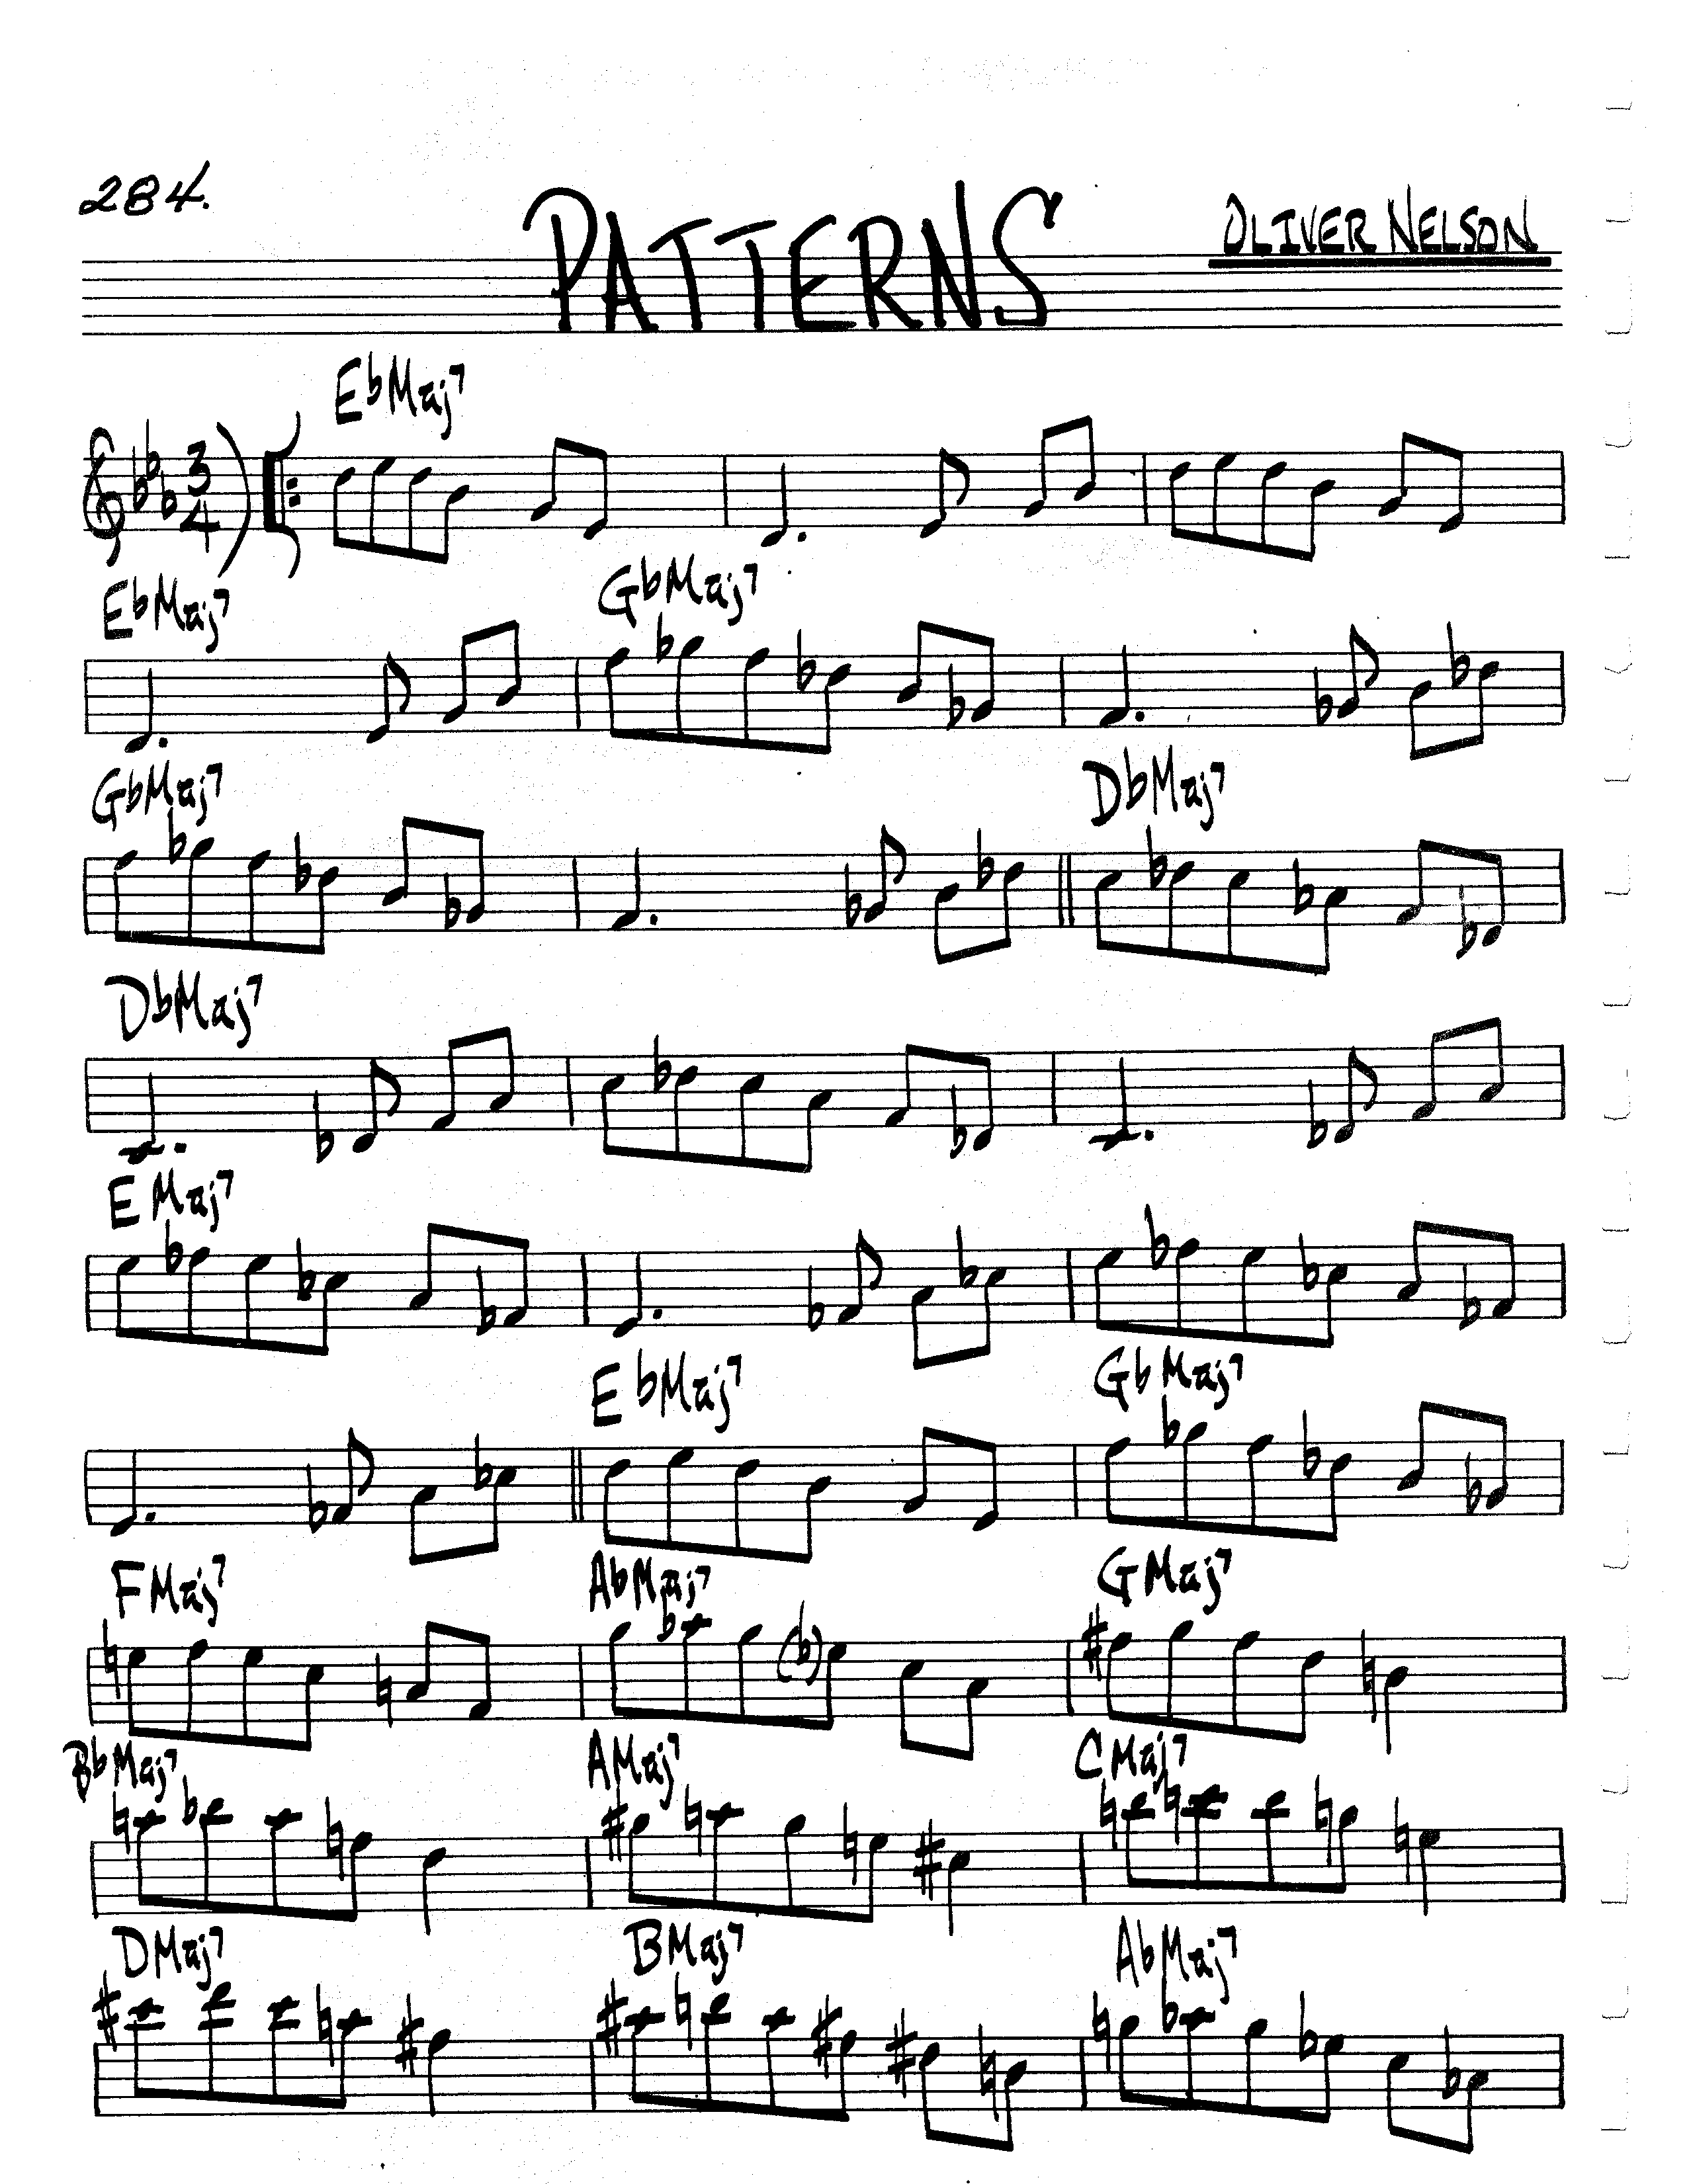 284.
PATTERNS
OLIVER NELSON
EbMaj7
3
4
EbMaj7 GbMaj7
GbMaj7 DbMaj7
DbMaj7
EMaj7
EbMaj7 GbMaj7
FMaj7 AbMaj7 GMaj7
BbMaj7 AMaj7 CMaj7
DMaj7 BMaj7 AbMaj7